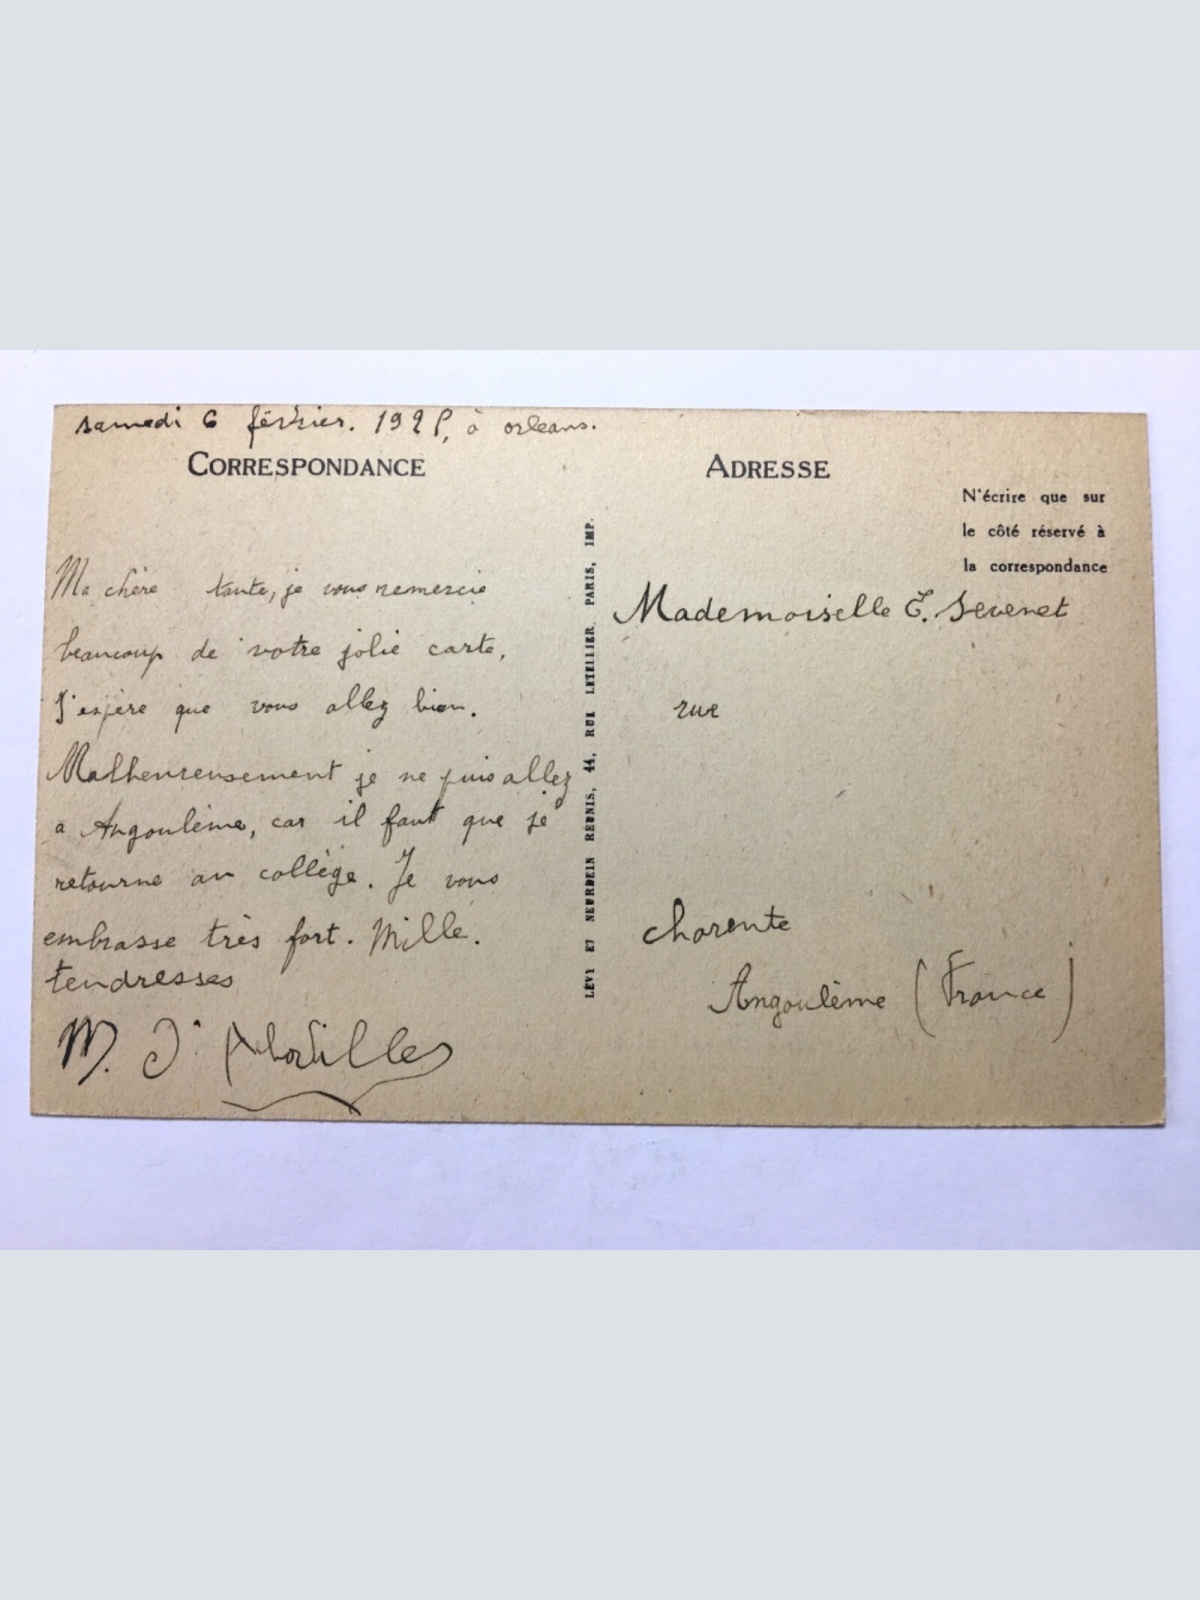 samedi 6 février. 192 , à orleans.
CORRESPONDANCE
Ma chère tante, je vous remercie
beaucoup de votre jolie carte,
J'espère que vous allez bien.
Malheureusement je ne puis allez
a Angoulème, car il faut que je
retourne au collège. Je vous
embrasse très fort. Mille.
tendresses
M. d'
LÉVY ET NEURDEIN RÉUNIS, 44, RUE LETELLIER. PARIS, IMP.
ADRESSE
N'écrire que sur
le côté réservé à
la correspondance
Mademoiselle Sevenet
rue
charente
Angoulème (France)